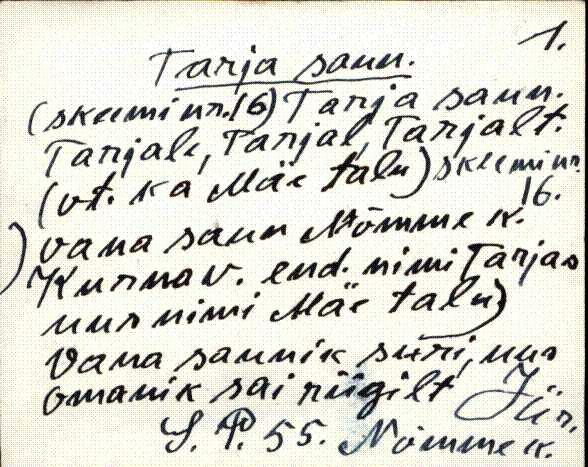 1.
Tarja saun.
(skeemi nr. 16) Tarja saun.
Tarjale, Tarjal, Tarjalt.
(vt. ka Mäe talu) skeemi nr. 16.
vana saun Nõmme k.
Kurna v. end. nimi Tarjas
uus nimi Mäe talu)
Vana saunik suri, uus
omanik sai riigilt Jür.
S. P. 55. Nõmme k.